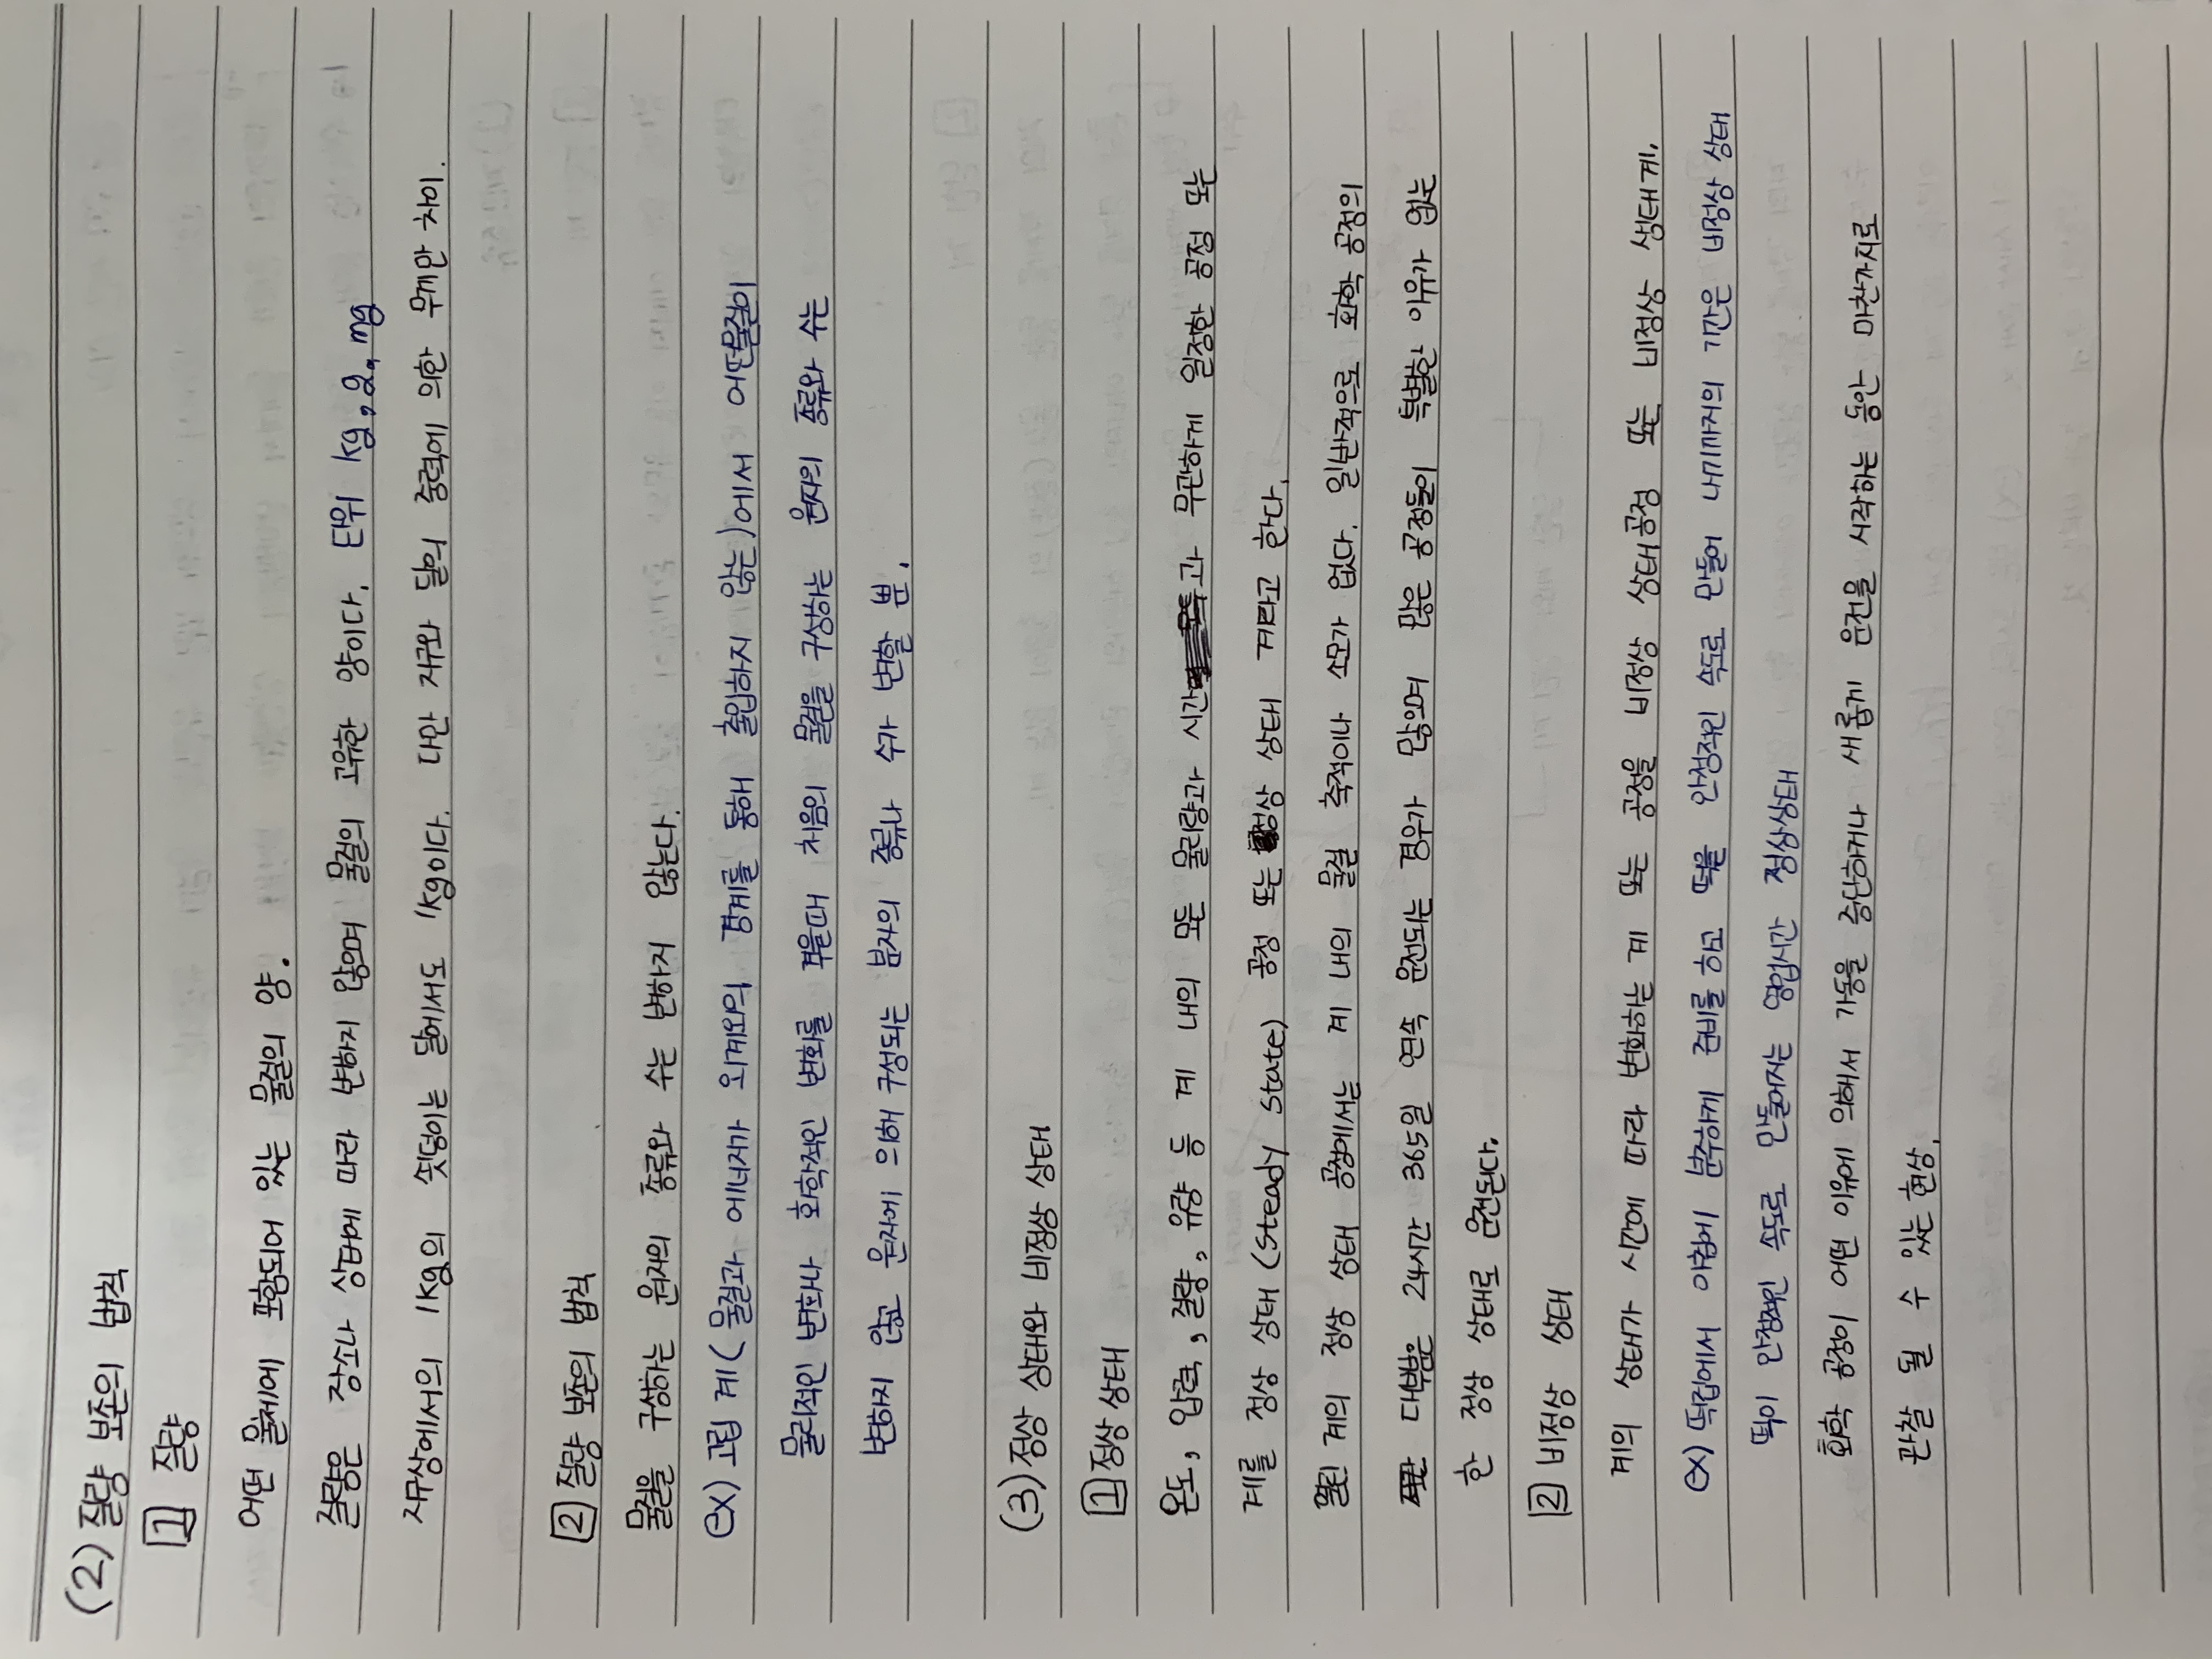 (2) 질량 보존의 법칙
1 질량
어떤 물체에 포함되어 있는 물질의 양.
질량은 장소나 상태에 따라 변하지 않으며 물질의 고유한 양이다. 단위 kg, g, mg
지구상에서의 1kg의 쇳덩이는 달에서도 1kg이다. 다만 지구와 달의 중력에 의한 무게만 차이.
2 질량 보존의 법칙
물질을 구성하는 원자의 종류와 수는 변하지 않는다.
ex) 고립 계(물질과 에너지가 외계와의 경계를 통해 출입하지 않는)에서 어떤물질이
물리적인 변화나 화학적인 변화를 겪을때 처음의 물질을 구성하는 원자의 종류와 수는
변하지 않고 원자에 의해 구성되는 분자의 종류나 수가 변할 뿐.
(3) 정상 상태와 비정상 상태
1 정상 상태
온도, 압력, 질량, 유량 등 계 내의 모든 물리량과 시간과 무관하게 일정한 공정 또는
계를 정상 상태(Steady State) 공정 또는 정상 상태 계라고 한다.
열린 계의 정상 상태 공정에서는 계 내의 물질 축적이나 소모가 없다. 일반적으로 화학 공정의
대부분은 24시간 365일 연속 운전되는 경우가 많으며 많은 공정들이 특별한 이유가 없는
한 정상 상태로 운전된다.
2 비정상 상태
계의 상태가 시간에 따라 변화하는 계 또는 공정을 비정상 상태공정 또는 비정상 상태계.
ex) 떡집에서 아침에 분주하게 준비를 하고 떡을 안정적인 속도로 만들어 내기까지의 기간은 비정상 상태
떡이 안정적인 속도로 만들어지는 영업시간 정상상태
화학 공정이 어떤 이유에 의해서 가동을 중단하거나 새롭게 운전을 시작하는 동안 마찬가지로
관찰 될 수 있는 현상.